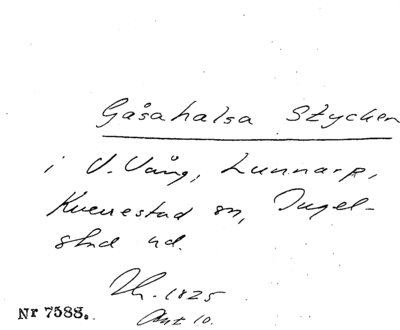 Gåsahalsa Stycken
i V. Vång, Lunnarp,
Kverrestad sn, Ingel-
stad hd.
1825
Akt 10.
Nr 7588.